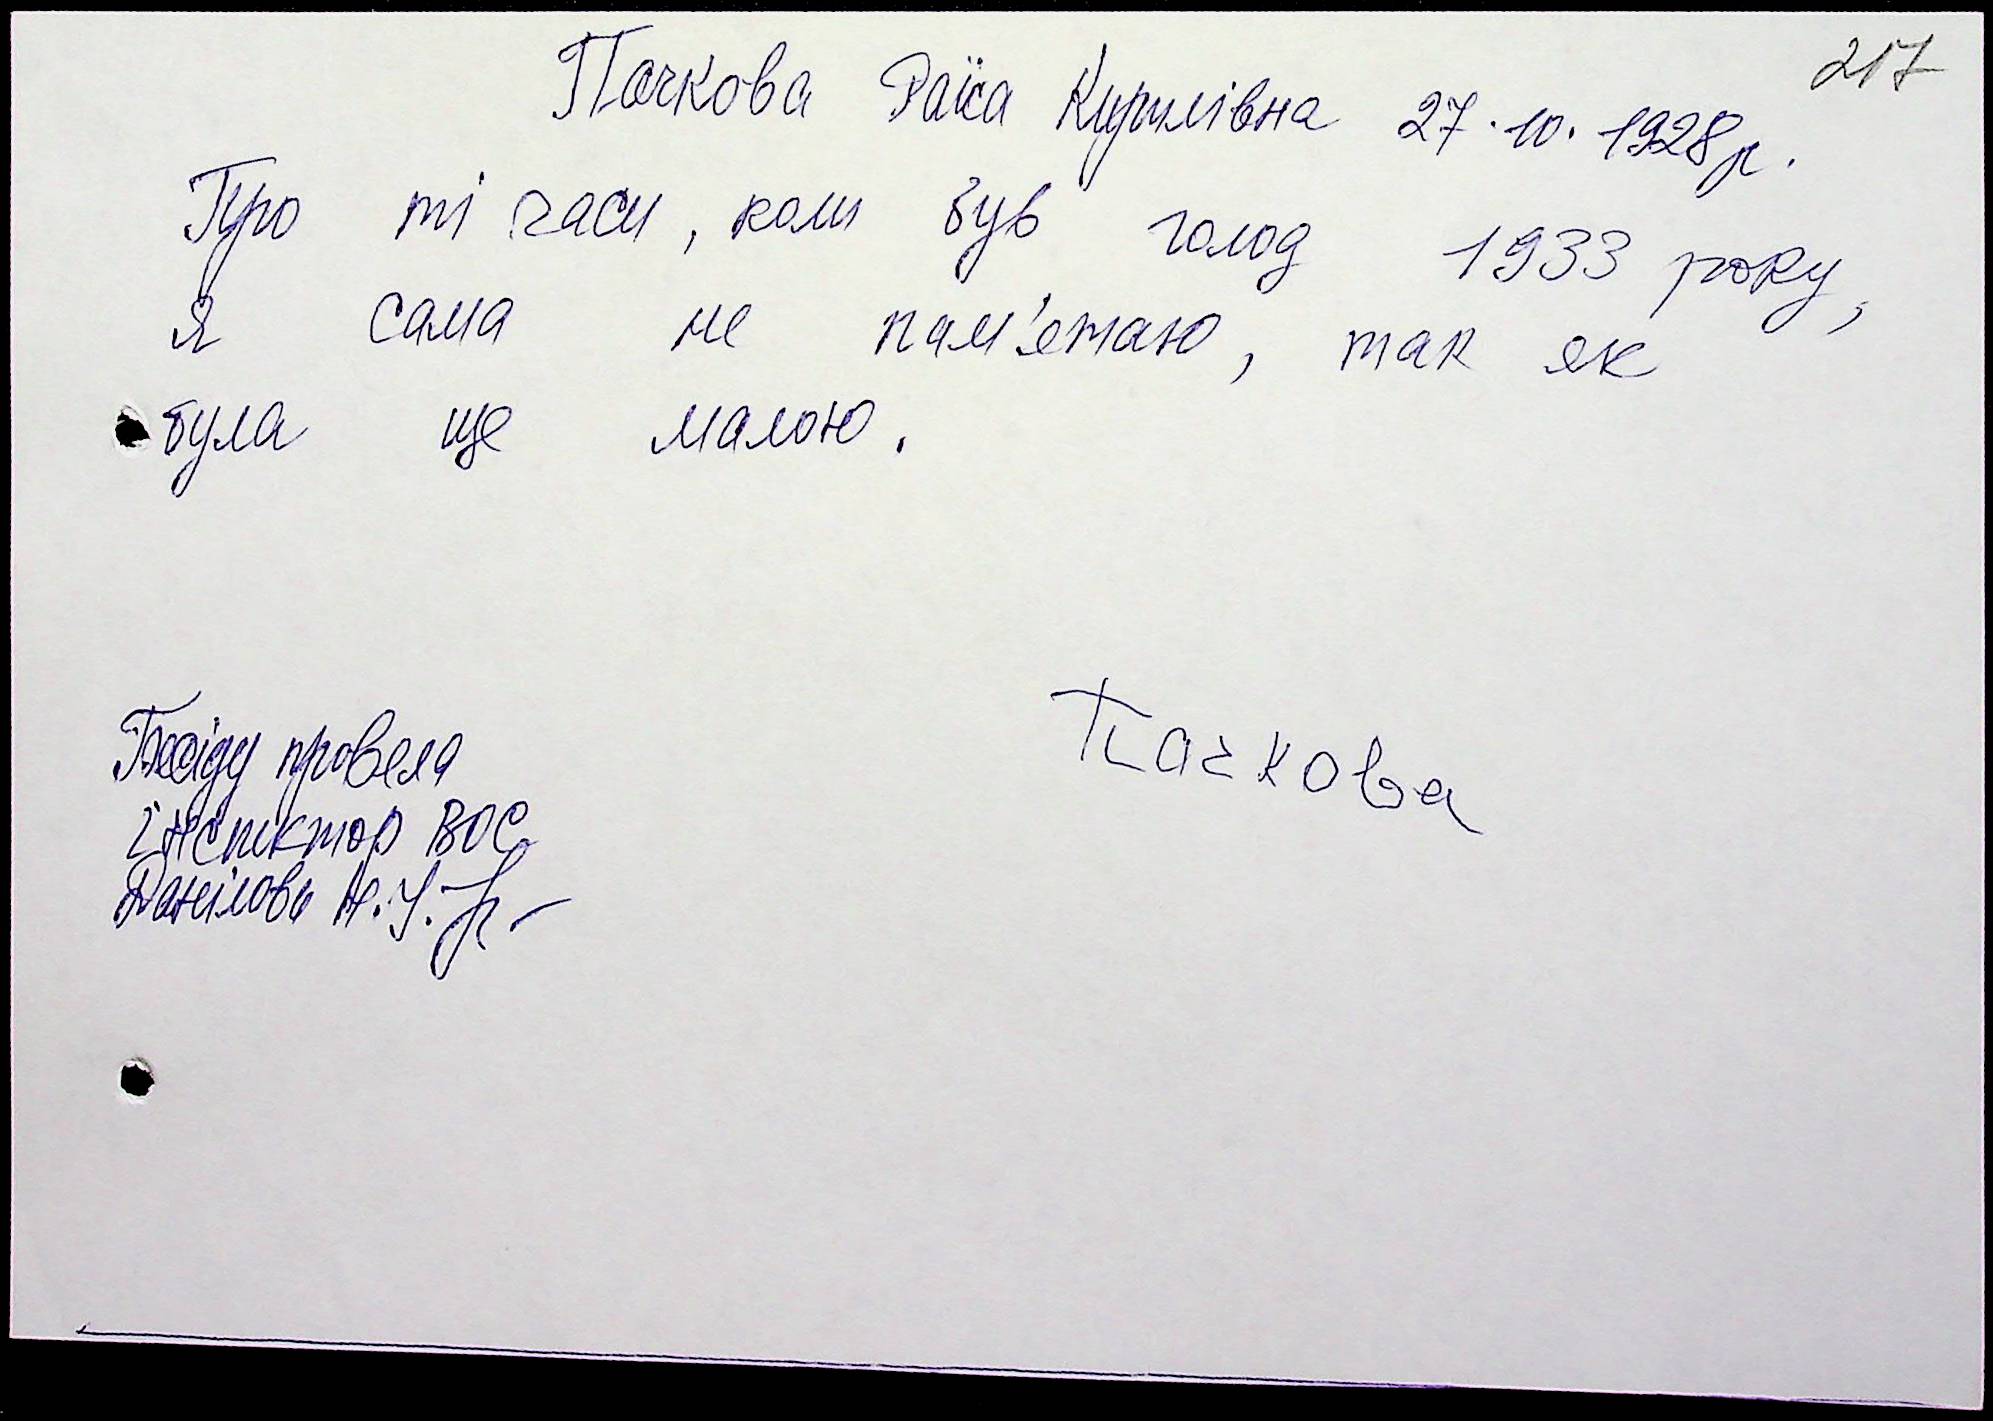 217
Пачкова Раїса Курилівна 27.10.1928р.
Про ті часи, коли був голод 1933 року,
я сама не пам'ятаю, так як
була ще малою.
Пачкова
Бесіду провела
інспектор ВОС
Данілова Н.У.